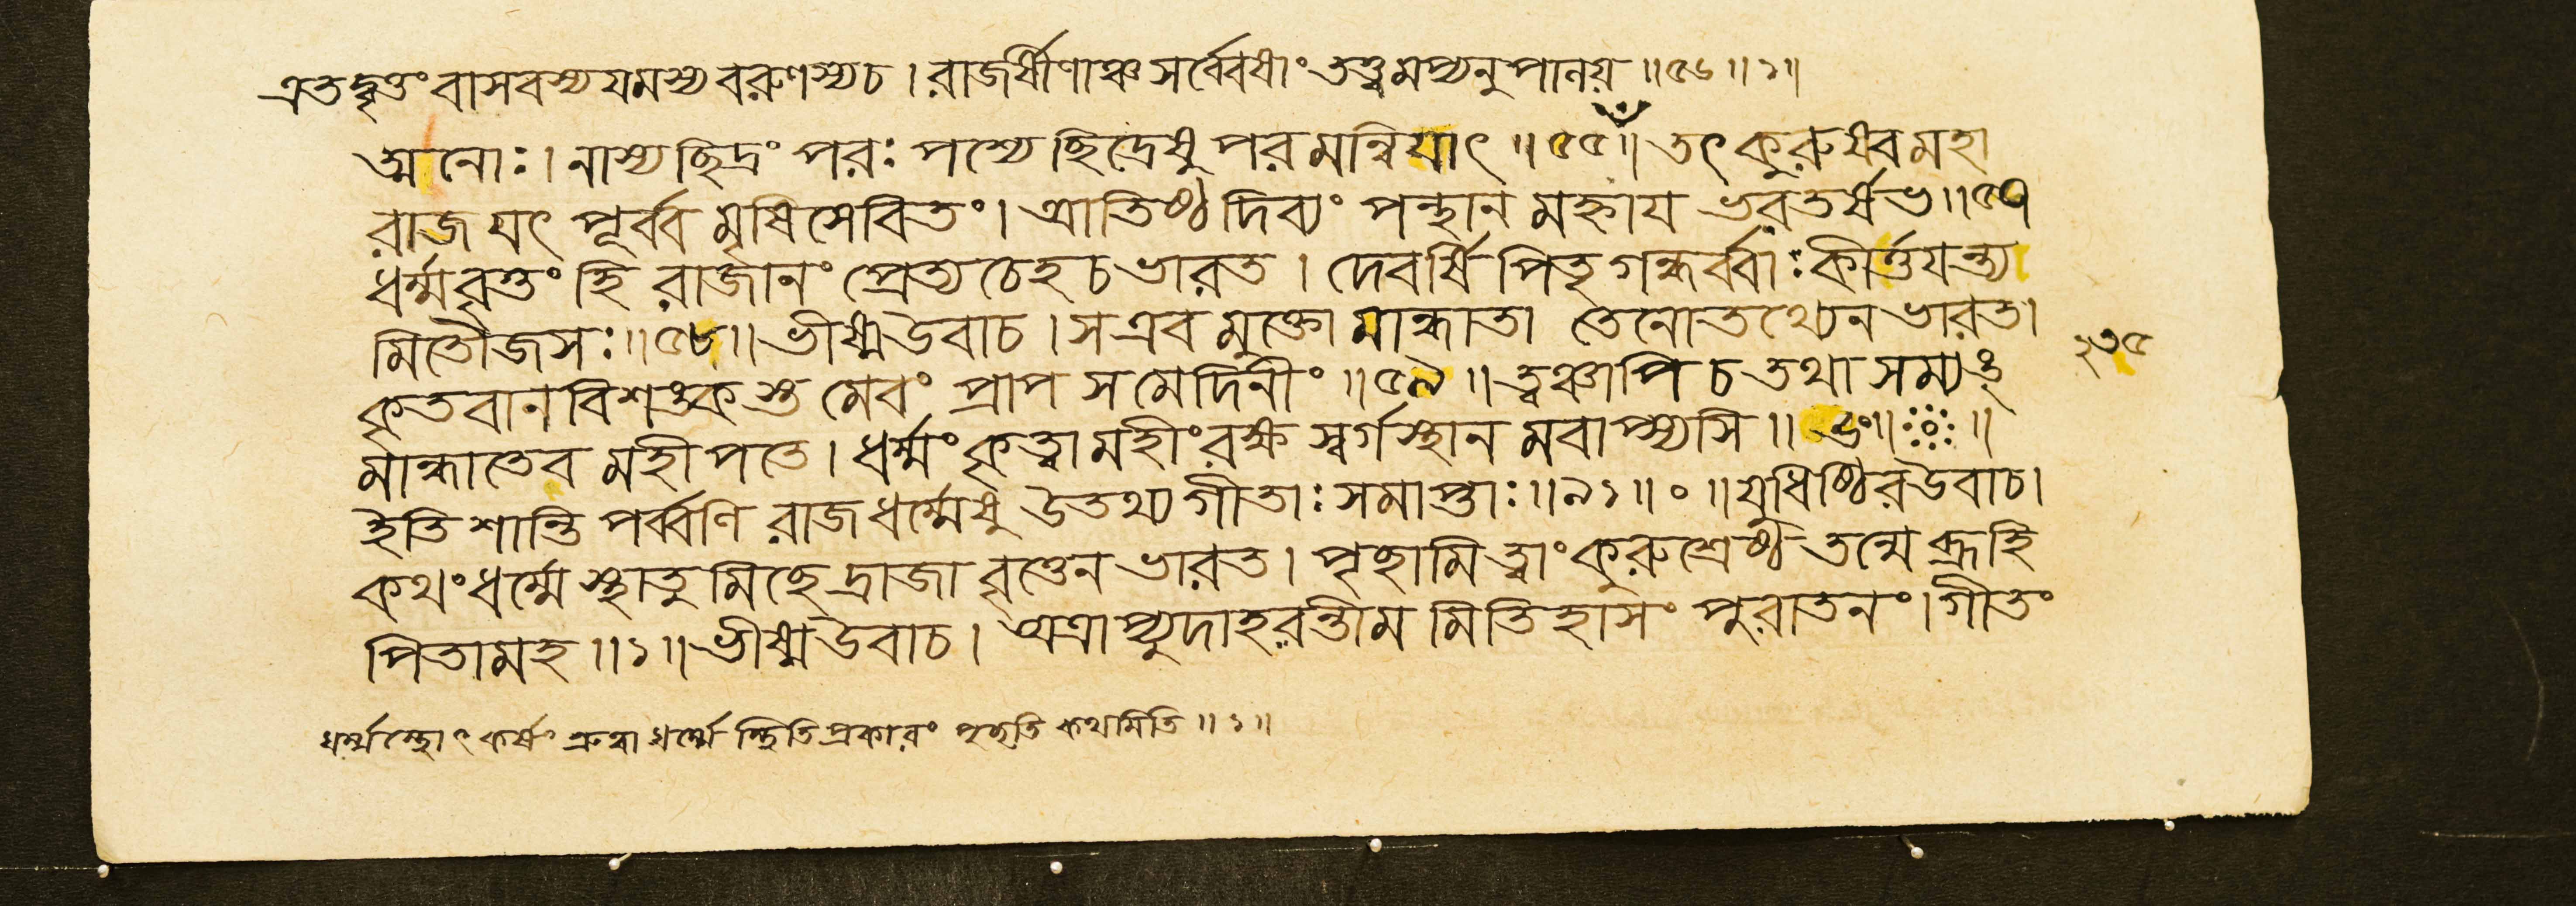 এতদ্বৃত্তং বাসবস্য যমস্য বরুণস্য চ । রাজর্ষীণাঞ্চ সর্ব্বেষাং তত্ত্বমপ্যনুপালয় ॥৫৬॥১॥
ত্মনোঃ । নাস্য ছিদ্রং পরঃ পশ্যে ছিদ্রেষু পরমন্বিয়াৎ ॥৫৫॥ তৎ কুরুষ্ব মহা
রাজ যৎ পূর্ব্ব মৃষিসেবিতং । আতিষ্ঠ দিব্যং পন্থান মহ্নায ভরতর্ষভ ॥৫৭
ধর্ম্মবৃত্তং হি রাজানং প্রেত্য চেহ চ ভারত । দেবর্ষি পিতৃগন্ধর্ব্বাঃ কীর্ত্তযন্ত্য
মিতৌজসঃ ॥৫৮॥ ভীষ্মউবাচ । স এব মুক্তো মান্ধাতা তেনোতথ্যেন ভারত ।
কৃতবানবিশঙ্কস্তু মেবং প্রাপ স মেদিনীং ॥৫৯॥ ত্বঞ্চাপি চ তথা সম্যঙ্
মান্ধাতেব মহীপতে । ধর্ম্মং কৃত্বা মহীং রক্ষ স্বর্গস্থান মবাপ্স্যসি ॥
ইতি শান্তিপর্ব্বণি রাজধর্ম্মেষু উতথ্যগীতাঃ সমাপ্তাঃ ॥৯১॥০॥ যুধিষ্ঠিরউবাচ ।
কথং ধর্ম্মে স্থাতু মিচ্ছে দ্রাজা বৃত্তেন ভারত । পৃচ্ছামি ত্বাং কুরুশ্রেষ্ঠ তন্মে ব্রূহি
পিতামহ ॥১॥ ভীষ্মউবাচ । অত্রাপ্যুদাহরন্তীম মিতিহাসং পুরাতনং । গীতং
ধর্ম্মস্যোৎকর্ষং শ্রুত্বা ধর্ম্মে স্থিতিপ্রকারং পৃচ্ছতি কথমিতি ॥১॥
২৩৫